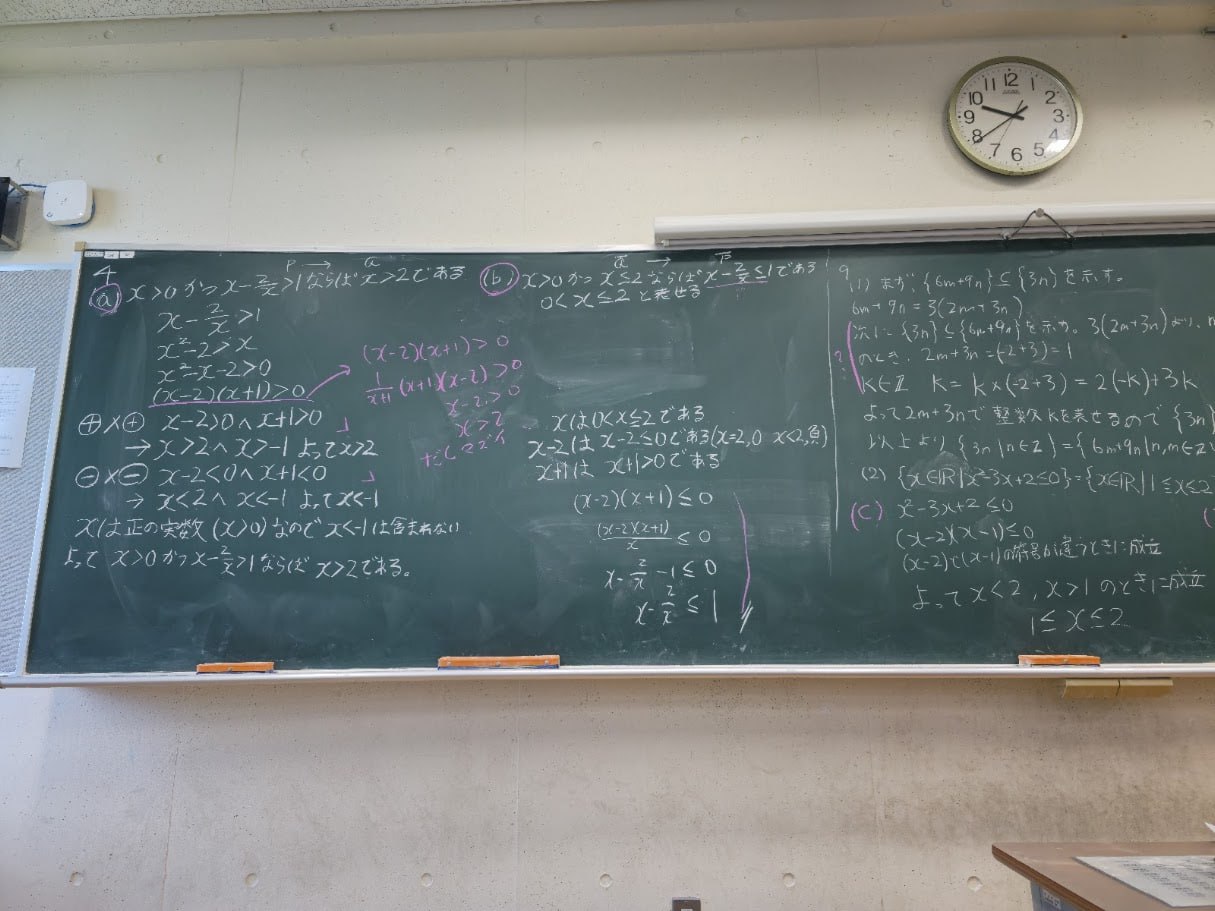 4
(a) x>0かつx-2/x>1ならばx>2である
P → Q
x-2/x>1
x²-2>x
x²-x-2>0
(x-2)(x+1)>0
⊕×⊕ x-2>0∧x+1>0
→x>2∧x>-1 よってx>2
⊖×⊖ x-2<0∧x+1<0
→x<2∧x<-1 よってx<-1
xは正の実数(x>0)なのでx<-1は含まれない
よって x>0かつx-2/x>1ならばx>2である。
(x-2)(x+1)>0
1/(x+1) (x+1)(x-2)>0
x-2>0
x>2
(b) x>0かつx≦2ならばx-2/x≦1である
0<x≦2と表せる
xは0<x≦2である
x-2は x-2≦0である(x=2,0 x<2,負)
x+1は x+1>0である
(x-2)(x+1)≦0
(x-2)(x+1)/x ≦0
x-2/x-1≦0
x-2/x≦1
9
(1) まず、{6m+9n}⊆{3n}を示す。
6m+9n=3(2m+3n)
次に{3n}⊆{6m+9n}を示す。3(2m+3n)より、
のとき、2m+3n=(-2+3)=1
k∈ℤ k=k×(-2+3)=2(-k)+3k
よって2m+3nで整数kを表せるので{3n}
以上より{3n|n∈ℤ}={6m+9n|n,m∈ℤ
(2) {x∈ℝ|x²-3x+2≦0}={x∈ℝ|1≦x≦2
(c) x²-3x+2≦0
(x-2)(x-1)≦0
(x-2)と(x-1)の符号が違うときに成立
よってx<2, x>1のときに成立
1≦x≦2
11 12 1
10 2
9 3
8 4
7 6 5